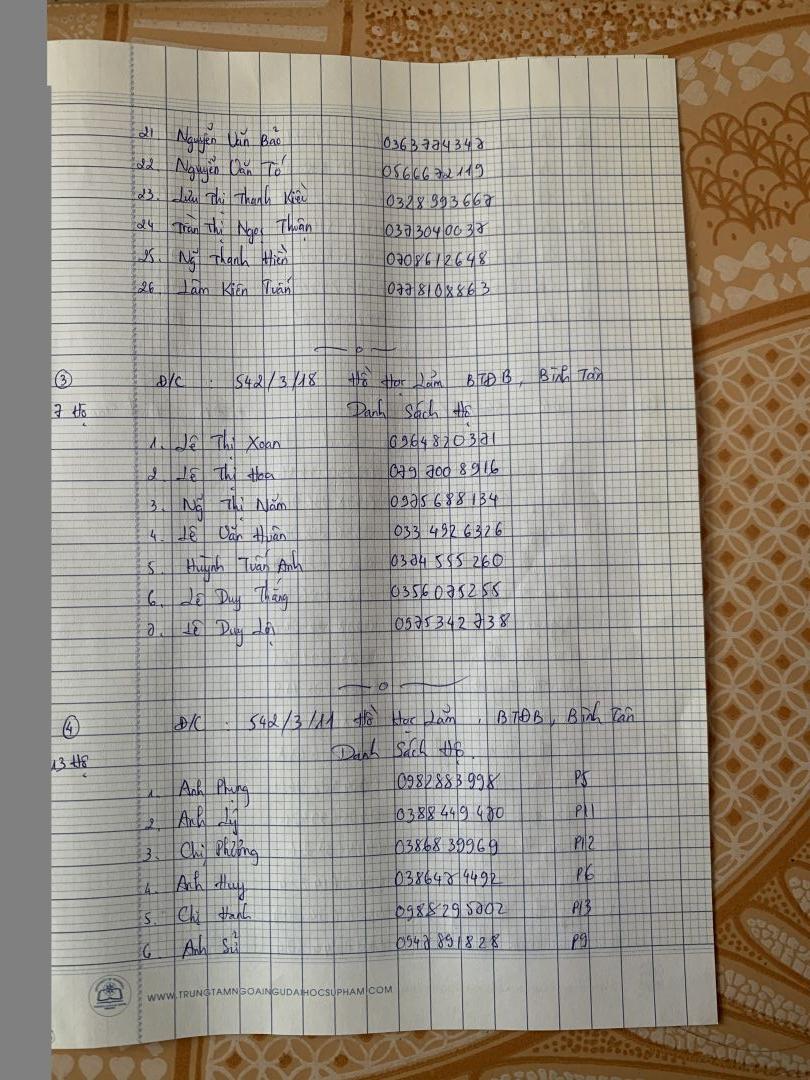 21 Nguyễn Văn Bảo 0363774347
22. Nguyễn Văn Tố 0566672119
23. Lưu Thị Thanh Kiều 0328993667
24 Trần Thị Ngọc Thuận 0373040037
25. Ng̃ Thanh Hiền 0708612648
26 Lâm Kiên Tuấn 0778108863
③ Đ/C : 542/3/18 Hồ Học Lãm BTĐB, Bình Tân
7 Hộ Danh Sách Hộ
1. Lê Thị Xoan 0964820371
2. Lê Thị Hoa 079 700 8916
3. Ng̃ Thị Năm 0975688134
4. Lê Văn Huân 033 492 6326
5. Huỳnh Tuấn Anh 0374 555 260
6. Lê Duy Thắng 0356075255
7. Lê Duy Lợi 0975342738
④ Đ/C : 542/3/11 Hồ Học Lãm, BTĐB, Bình Tân
13 Hộ Danh Sách Hộ.
1. Anh Phụng 0982883998 P5
2. Anh Lý 0388449470 P11
3. Chị Phượng 0386839969 P12
4. Anh Huy 0386474492 P6
5. Chị Hạnh 0988295702 P13
6 Anh Sử 0947891828 P9
WWW.TRUNGTAMNGOAINGUDAIHOCSUPHAM.COM